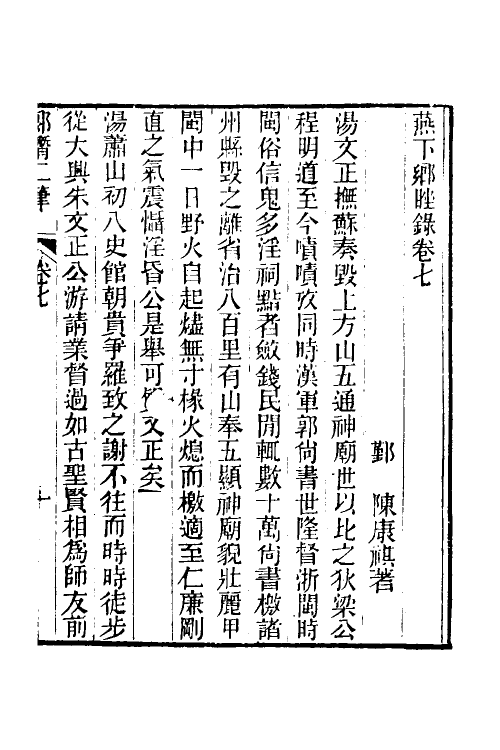 燕下鄉脞錄卷七
鄞　陳康祺著
湯文正撫蘇奏毀上方山五通神廟世以比之狄梁公
程明道至今嘖嘖攷同時漢軍郭尙書世隆督浙閩時
閩俗信鬼多淫祠黠者斂錢民閒輒數十萬尙書檄諸
州縣毀之離省治八百里有山奉五顯神廟貌壯麗甲
閩中一日野火自起燼無寸椽火熄而檄適至仁廉剛
直之氣震懾淫昏公是舉可文正矣
湯蕭山初入史館朝貴爭羅致之謝不往而時時徒步
從大興朱文正公游請業督過如古聖賢相爲師友前
郎潛二筆　卷七